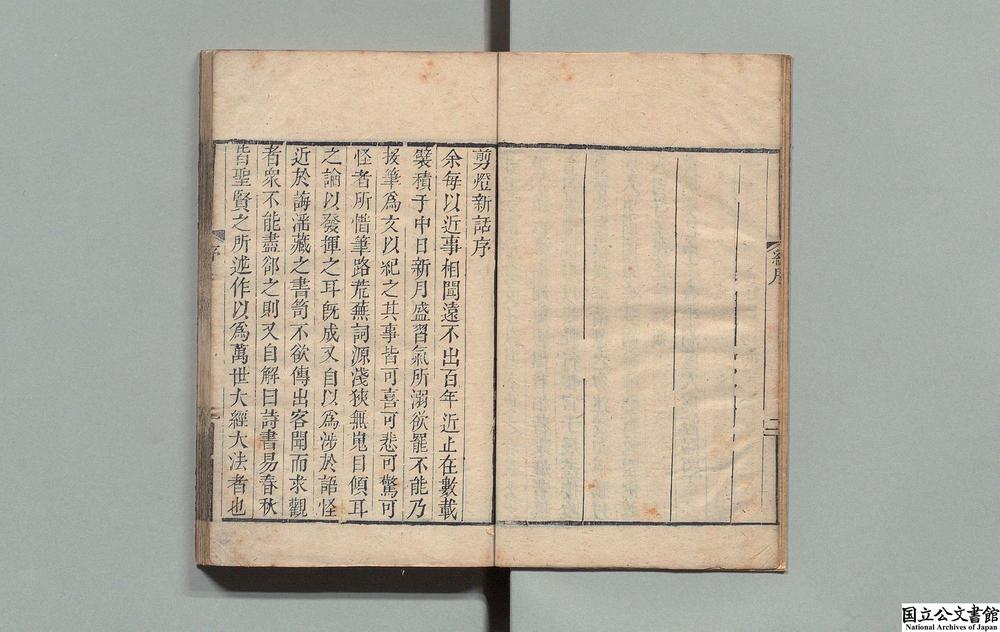 剪燈新話序
余每以近事相聞遠不出百年近止在數載
襞積于中日新月盛習氣所溺欲罷不能乃
援筆爲文以紀之其事皆可喜可悲可驚可
怪者所惜筆路荒蕪詞源淺狹無嵬目傾耳
之論以發揮之耳旣成又自以爲涉於語怪
近於誨淫藏之書笥不欲傳出客聞而求觀
者衆不能盡郤之則又自解曰詩書易春秋
皆聖賢之所述作以爲萬世大經大法者也
序
二
国立公文書館
National Archives of Japan